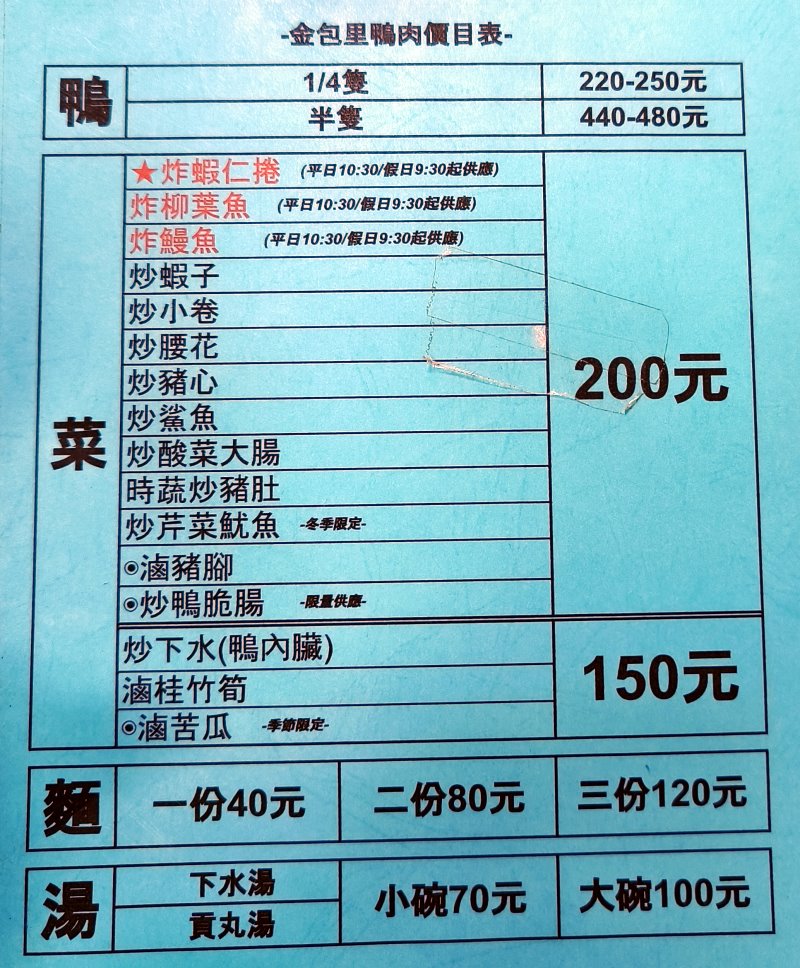 -金包里鴨肉價目表-
鴨
1/4隻 220-250元
半隻 440-480元
菜
★炸蝦仁捲 (平日10:30/假日9:30起供應)
炸柳葉魚 (平日10:30/假日9:30起供應)
炸鰻魚 (平日10:30/假日9:30起供應)
炒蝦子
炒小卷
炒腰花
炒豬心
炒鯊魚
炒酸菜大腸
時蔬炒豬肚
炒芹菜魷魚 -冬季限定-
◉滷豬腳
◉炒鴨脆腸 -限量供應-
200元
炒下水(鴨內臟)
滷桂竹筍
◉滷苦瓜 -季節限定-
150元
麵 一份40元 二份80元 三份120元
湯
下水湯
貢丸湯
小碗70元 大碗100元